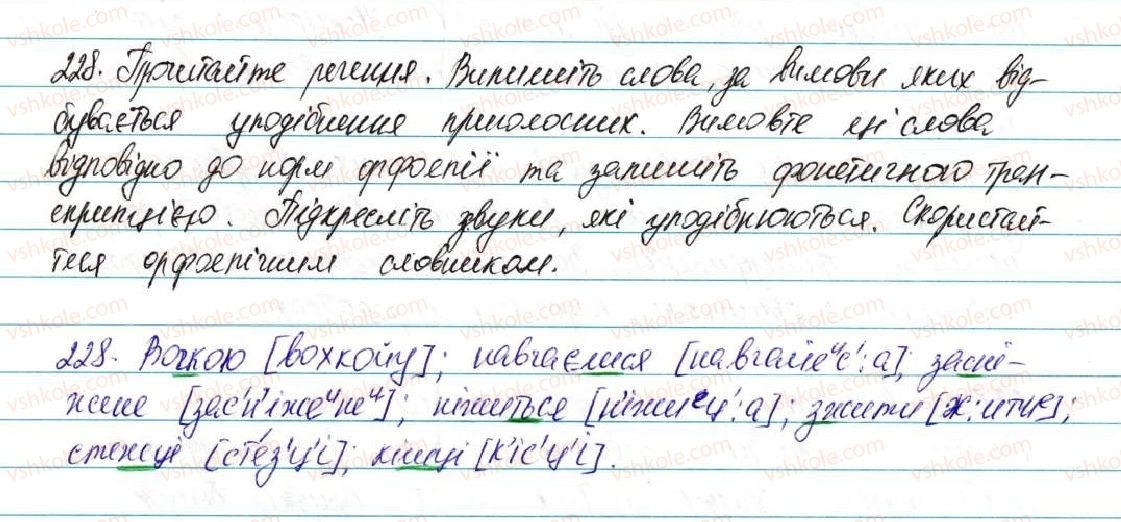 228. Прочитайте речення. Випишіть слова, за вимови яких від-
бувається уподібнення приголосних. Вимовте ці слова
відповідно до норм орфоепії та запишіть фонетичною тран-
скрипцією. Підкресліть звуки, які уподібнюються. Скористай-
теся орфоепічним словником.
228. Вогкою [вохкойу]; навчаєшся [навчайеиc':а]; засні-
жене [зас'н'іжеине и]; ніжиться [н'іжиец':а]; зжити [ж:ити];
стежці [сте́з'ц'і]; кішці [к'іс'ц'і].